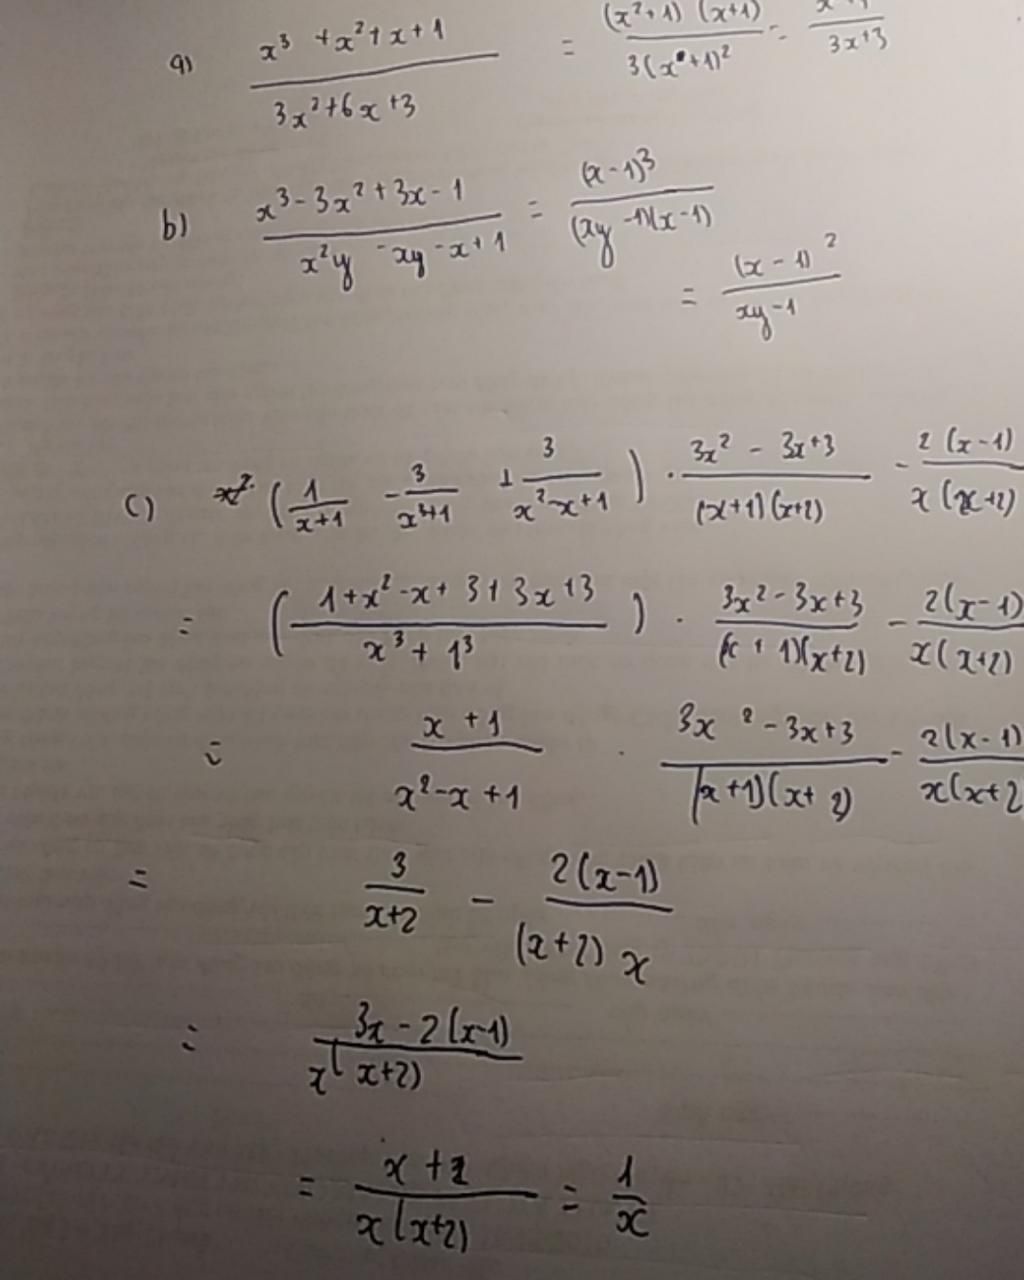 a) (x³ + x² + x + 1)/(3x² + 6x + 3) = ((x² + 1)(x+1))/(3(x + 1)²) = /(3x+3)
b) (x³ - 3x² + 3x - 1)/(x²y - xy - x + 1) = (x - 1)³/((xy - 1)(x - 1))
= (x - 1)²/(xy - 1)
c) (1/(x+1) - 3/(x³+1) + 3/(x² - x + 1)) · (3x² - 3x + 3)/((x+1)(x+2)) - 2(x-1)/(x(x+2))
= ((1 + x² - x + 3 + 3x + 3)/(x³ + 1³)) · (3x² - 3x + 3)/((x + 1)(x+2)) - 2(x-1)/(x(x+2))
= (x + 1)/(x² - x + 1) · (3x² - 3x + 3)/((x+1)(x+2)) - 2(x-1)/(x(x+2
= 3/(x+2) - 2(x-1)/((x+2) x)
= (3x - 2(x-1))/(x(x+2))
= (x + 2)/(x(x+2)) = 1/x